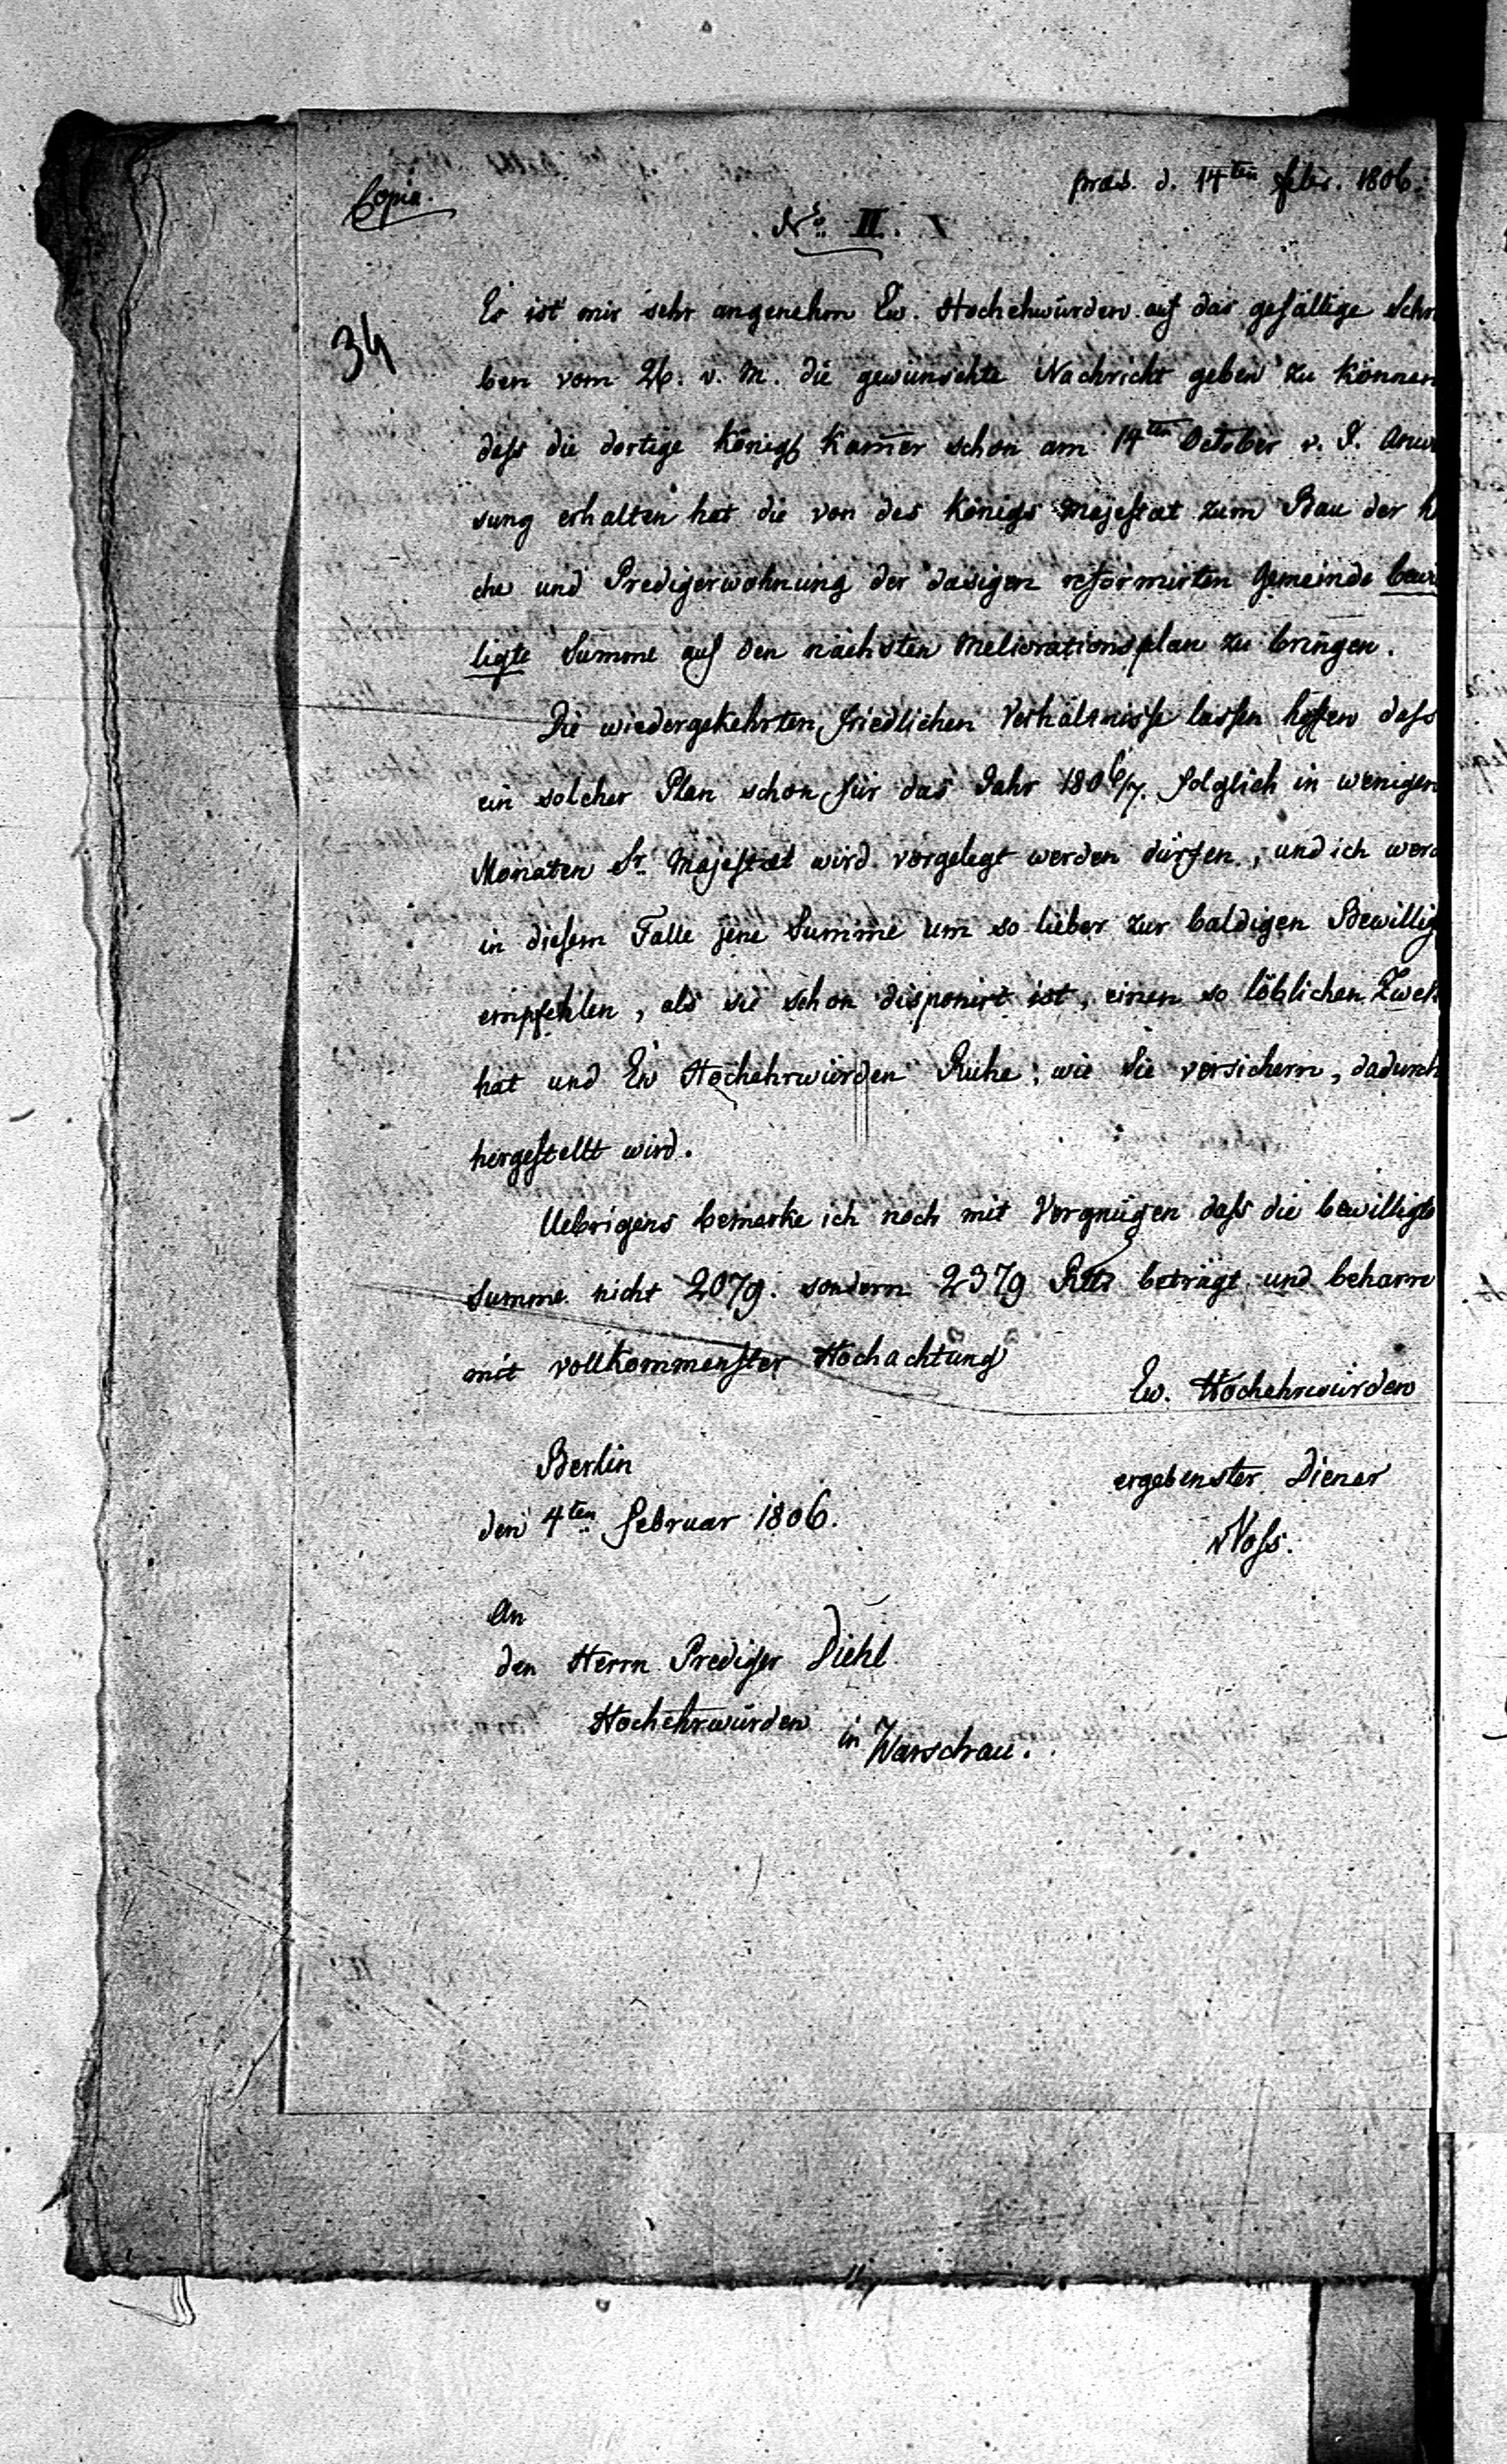 Copia.
praes. d. 14ten Febr. 1806.
No. II.
34
Es ist mir sehr angenehm Ew. Hochehwürden auf das gefällige Schr
ben vom 26. v. M. die gewünschte Nachricht geben zu können
dass die dortige Königl Kam̅er schon am 14ten October v. J. Anw
sung erhalten hat die von des Königs Majestät zum Bau der K
che und Predigerwohnung der dasigen reformirten Gemeinde bew
ligte Summe auf den nächsten Meliorationsplan zu bringen.
Die wiedergekehrten friedlichen Verhältnisse lassen hoffen dass
ein solcher Plan schon für das Jahr 1806/7. folglich in wenigen
Monaten Sr. Majestæt wird vorgelegt werden dürfen, und ich werd
in diesem Falle jene Summe um so lieber zur baldigen Bewillig
empfehlen, als sie schon disponirt ist, einen so löblichen Zwek
hat und Ew Hochehrwürden Ruhe, wie Sie versichern, dadurch
hergestellt wird.
Uebrigens bemerke ich noch mit Vergnügen dass die bewilligte
Summe nicht 2079. sondern 2379 Rtlr beträgt und beharre
mit vollkommenster Hochachtung
Ew. Hochehrwürden
Berlin
ergebenster Diener
den 4ten Februar 1806.
vVoss.
An
den Herrn Prediger Diehl
Hochehrwürden
in Warschau.